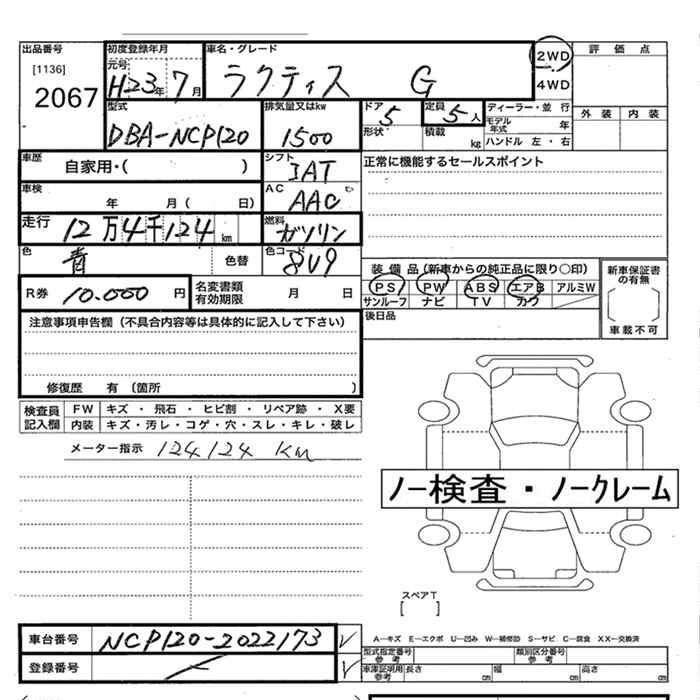 出品番号 初度登録年月 車名・グレード 2WD 評価点
[1136] 元号 H23年7月 ラクティス G 4WD
2067
型式 排気量又はkw ドア 定員 ディーラー・並行 外装 内装
DBA-NCP120 1500 5 5人 モデル年式 年
形状 積載 kg ハンドル 左・右
車歴 自家用・( ) シフト 正常に機能するセールスポイント
車検 年 月( 日) AC AAC
走行 12万4千124km 燃料 ガソリン
色 青 色替 色コード 8V9 装備品(新車からの純正品に限り○印) 新車保証書の有無
R券 10.000円 名変書類有効期限 月 日 PS PW ABS エアB アルミW
サンルーフ ナビ TV カワ
車載不可
注意事項申告欄(不具合内容等は具体的に記入して下さい) 後日品
修復歴 有(箇所 )
検査員記入欄 FW キズ・飛石・ヒビ割・リペア跡・X要
内装 キズ・汚レ・コゲ・穴・スレ・キレ・破レ
メーター指示 124124 Km
ノー検査・ノークレーム
スペアT
[ ]
車台番号 NCP120-2022173 A－キズ E－エクボ U－凹み W－補修跡 S－サビ C－腐食 XX－交換済
登録番号 型式指定番号 参考 類別区分番号 参考
車庫証明用参考 長さ cm 幅 cm 高さ cm